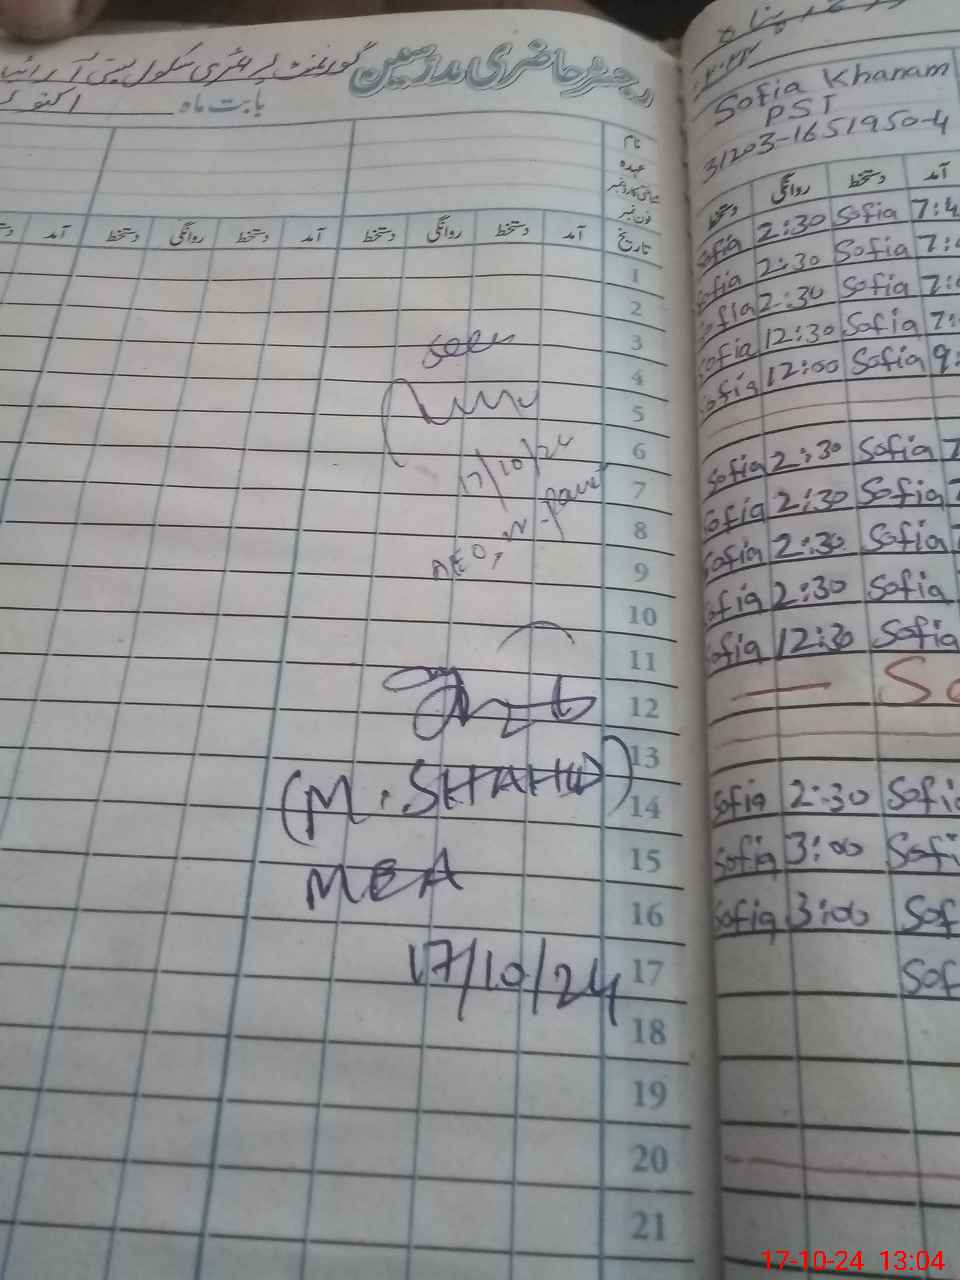 رجسٹر حاضری مدرسین گورنمنٹ پرائمری سکول بستی آرائیاں
بابت ماہ اکتوبر
نام
عہدہ
شناختی کارڈ نمبر
فون نمبر
تاریخ آمد دستخط روانگی دستخط آمد دستخط روانگی دستخط آمد
1
2
3
seen
4
5
6
17/10/24
7
8
AEO,
9
10
11
12
13
(M. SHAHID)
14
15
MEA
16
17/10/24
17
18
19
20
21
Sofia Khanam
PST
31203-1651950-4
آمد دستخط روانگی دستخط
Sofia 2:30 Sofia 7:4
Sofia 2:30 Sofia 7:
Sofia 2:30 Sofia 7:
Sofia 12:30 Sofia 7:
Sofia 12:00 Sofia 9:
Sofia 2:30 Sofia 7
Sofia 2:30 Sofia
Sofia 2:30 Sofia
Sofia 2:30 Sofia
Sofia 12:30 Sofia
Sofia 2:30 Sofi
Sofia 3:00 Sofi
Sofia 3:00 Sof
Sof
17-10-24 13:04